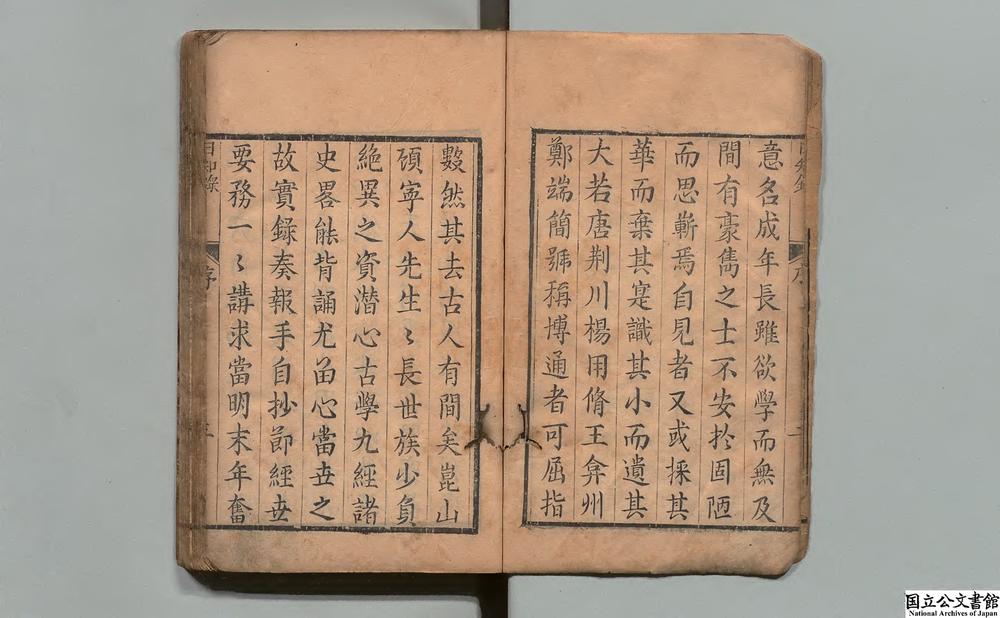 意名成年長雖欲學而無及
間有豪雋之士不安扵固陋
而思嶄焉自見者又或採其
華而棄其寔識其小而遺其
大若唐荆川楊用脩王弇州
鄭端簡號稱博通者可屈指
數然其去古人有間矣崑山
頋寧人先生〻長世族少負
絶異之資潛心古學九經諸
史畧能背誦尤留心當世之
故實録奏報手自抄節經世
要務一〻講求當明末年奮
日知錄
序
国立公文書館
National Archives of Japan